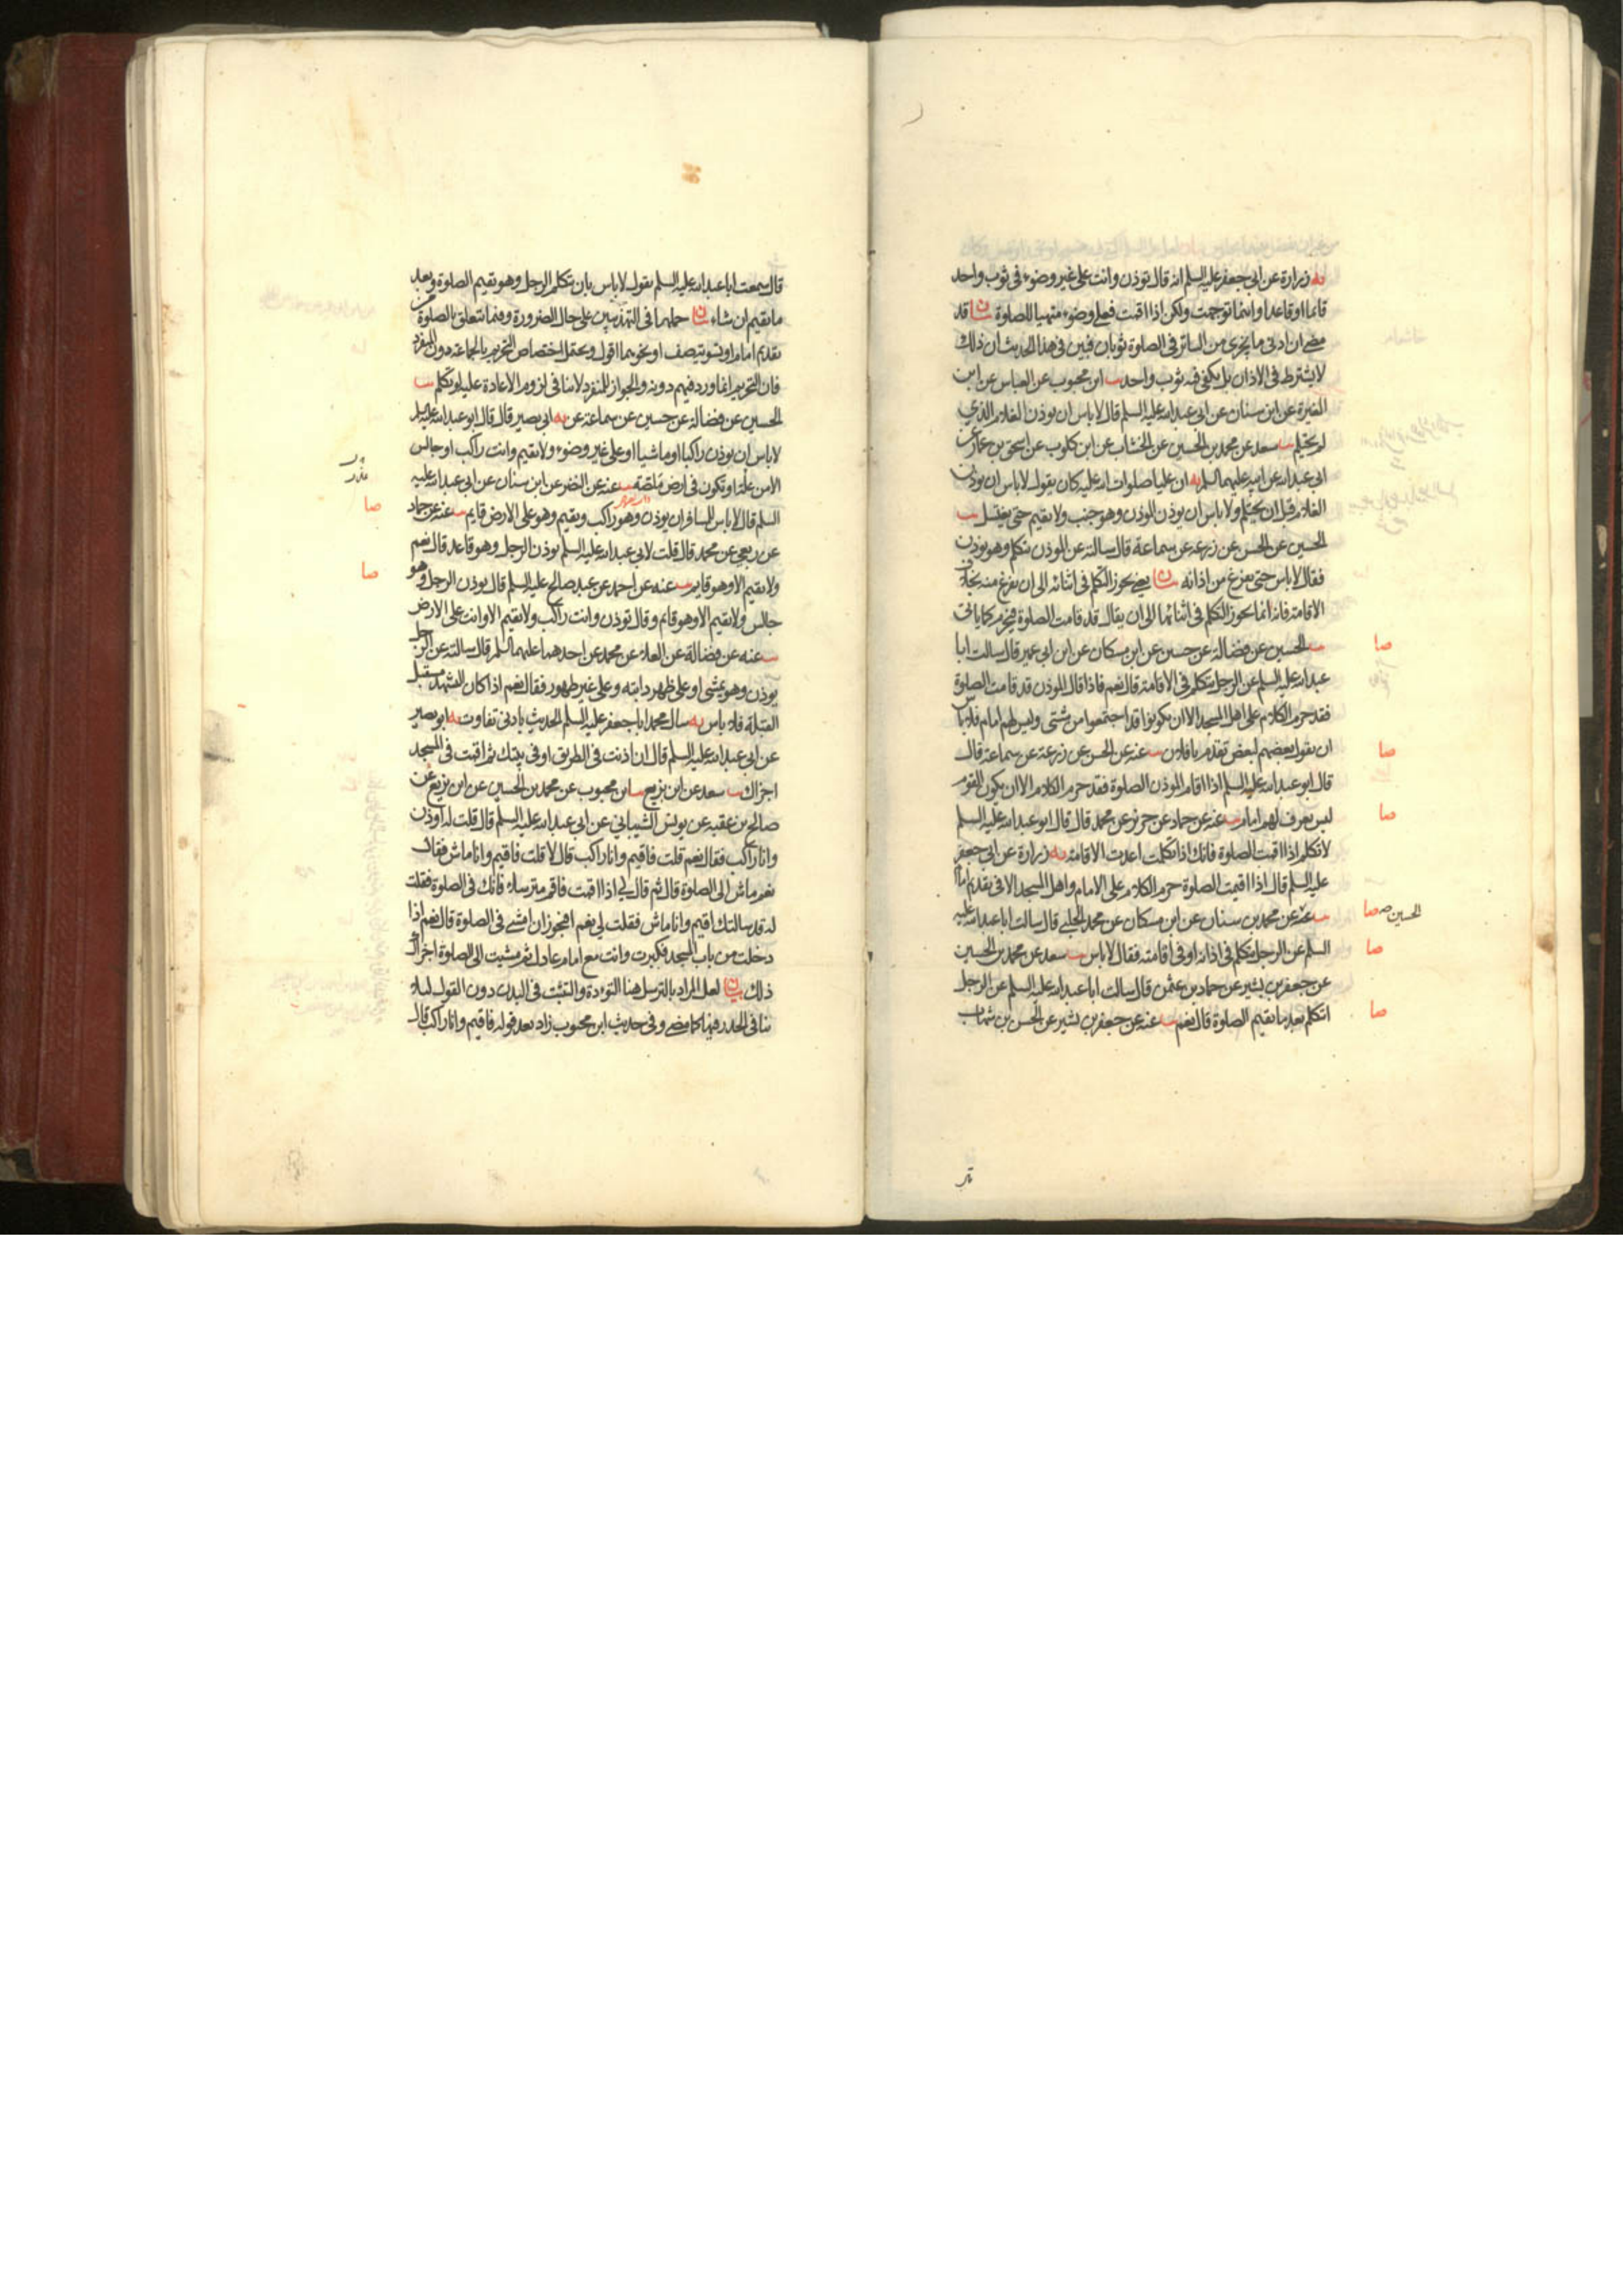 يه زرارة عن ابي جعفر عليه السلم انه قال تؤذن وانت على غير وضوء في ثوب واحد
قائما او قاعدا واينما توجهت ولكن اذا اقمت فعلى وضوء متهيا للصلوة بيان قد
مضى ان ادنى ما يجزى من الساتر في الصلوة ثوبان فبين في هذا الحديث ان ذلك
لا يشترط في الاذان بل يكفى فيه ثوب واحد يب ابن محبوب عن العباس عن ابن
المغيرة عن ابن سنان عن ابي عبدالله عليه السلم قال لا باس ان يوذن الغلام الذي
لم يحتلم يب سعد عن محمد بن الحسين عن الخشاب عن ابن كلوب عن اسحق بن عمار عن
ابي عبدالله عن ابيه عليهما السلم يه ان عليا صلوات الله عليه كان يقول لا باس ان يوذن
الغلام قبل ان يحتلم ولا باس ان يوذن الموذن وهو جنب ولا يقيم حتى يغتسل يب
الحسين عن الحسن عن زرعه عن سماعة قال سالته عن الموذن يتكلم وهو يوذن
فقال لا باس حتى يفرغ من اذانه بيان يعني يجوز التكلم في اثنائه الى ان يفرغ منه بخلاف
الاقامة فانه انما يجوز التكلم في اثنائها الى ان يقال قد قامت الصلوة فيحرم كما ياتي
يب الحسين عن فضالة عن حسين عن ابن مسكان عن ابن ابي عمير قال سالت ابا
عبدالله عليه السلم عن الرجل يتكلم في الاقامة قال نعم فاذا قال الموذن قد قامت الصلوة
فقد حرم الكلام على اهل المسجد الا ان يكونوا قد اجتمعوا من شتى وليس لهم امام فلا باس
ان يقول بعضهم لبعض تقدم يا فلان يب عنه عن الحسن عن زرعة عن سماعة قال
قال ابو عبدالله عليه السلم اذا اقام الموذن الصلوة فقد حرم الكلام الا ان يكون القوم
ليس يعرف لهم امام يب عنه عن حماد عن حريز عن محمد قال قال ابو عبدالله عليه السلم
لا تكلم اذا اقمت الصلوة فانك اذا تكلمت اعدت الاقامة يه زرارة عن ابي جعفر
عليه السلم قال اذا اقيمت الصلوة حرم الكلام على الامام واهل المسجد الا في تقديم امام
يب عنه عن محمد بن سنان عن ابن مسكان عن محمد الحلبي قال سالت ابا عبدالله عليه
السلم عن الرجل يتكلم في اذانه او في اقامته فقال لا باس يب سعد عن محمد بن الحسين
عن جعفر بن بشير عن حماد بن عثمن قال سالت ابا عبدالله عليه السلم عن الرجل
ايتكلم بعد ما يقيم الصلوة قال نعم يب عنه عن جعفر بن بشير عن الحسن بن شهاب
صا
صا
صا
الحسين صح صا
صا
صا
قال سمعت ابا عبدالله عليه السلم يقول لا باس بان يتكلم الرجل وهو يقيم الصلوة وبعد
ما يقيم ان شاء بيان حملهما في التهذيبين على حال الضرورة وفيما يتعلق بالصلوة من
تقديم امام او تسوية صف او نحوهما اقول ويحتمل اختصاص التحريم بالجماعة دون المنفرد
فان التحريم انما ورد فيهم دونه والجواز للمنفرد لا ينافي لزوم الاعادة عليه لو تكلم يب
الحسين عن فضالة عن حسين عن سماعة عن يه ابي بصير قال قال ابو عبدالله عليه السلم
لا باس ان يوذن راكبا او ماشيا او على غير وضوء ولا تقيم وانت راكب او جالس
الا من علة او تكون في ارض ملصة يب عنه عن النضر عن ابن سنان عن ابي عبدالله عليه
السلم قال لا باس للمسافر ان يوذن وهو راكب ويقيم وهو على الارض قايم يب عنه عن حماد
عن ربعي عن محمد قال قلت لابي عبدالله عليه السلم يوذن الرجل وهو قاعد قال نعم
ولا يقيم الا وهو قايم يب عنه عن احمد عن عبد صالح عليه السلم قال يوذن الرجل وهو
جالس ولا يقيم الا وهو قائم وقال تؤذن وانت راكب ولا تقيم الا وانت على الارض
يب عنه عن فضالة عن العلاء عن محمد عن احدهما عليهما السلم قال سالته عن الرجل
يوذن وهو يمشى او على ظهر دابته وعلى غير طهور فقال نعم اذا كان التشهد مستقبل
القبلة فلا باس يه سال محمد ابا جعفر عليه السلم الحديث بادنى تفاوت يه ابو بصير
عن ابي عبدالله عليه السلم قال ان اذنت في الطريق او في بيتك ثم اقمت في المسجد
اجزاك يب سعد عن ابن بزيع يب ابن محبوب عن محمد بن الحسين عن ابن بزيع عن
صالح بن عقبه عن يونس الشيباني عن ابي عبدالله عليه السلم قال قلت له اوذن
وانا راكب فقال نعم قلت فاقيم وانا راكب قال لا قلت فاقيم وانا ماش فقال
نعم ماش الى الصلوة قال ثم قال لي اذا اقمت فاقم مترسلا فانك في الصلوة فقلت
له قد سالتك اقيم وانا ماش فقلت لي نعم افيجوز ان امشى في الصلوة قال نعم اذا
دخلت من باب المسجد فكبرت وانت مع امام عادل ثم مشيت الى الصلوة اجزاك
ذلك بيان لعل المراد بالترسل هنا التؤدة والتثبت في البدن دون القول لئلا
ينافي الحدر فيها كما مضى وفي حديث ابن محبوب زاد بعد قوله فاقيم وانا راكب قال
صا
صا